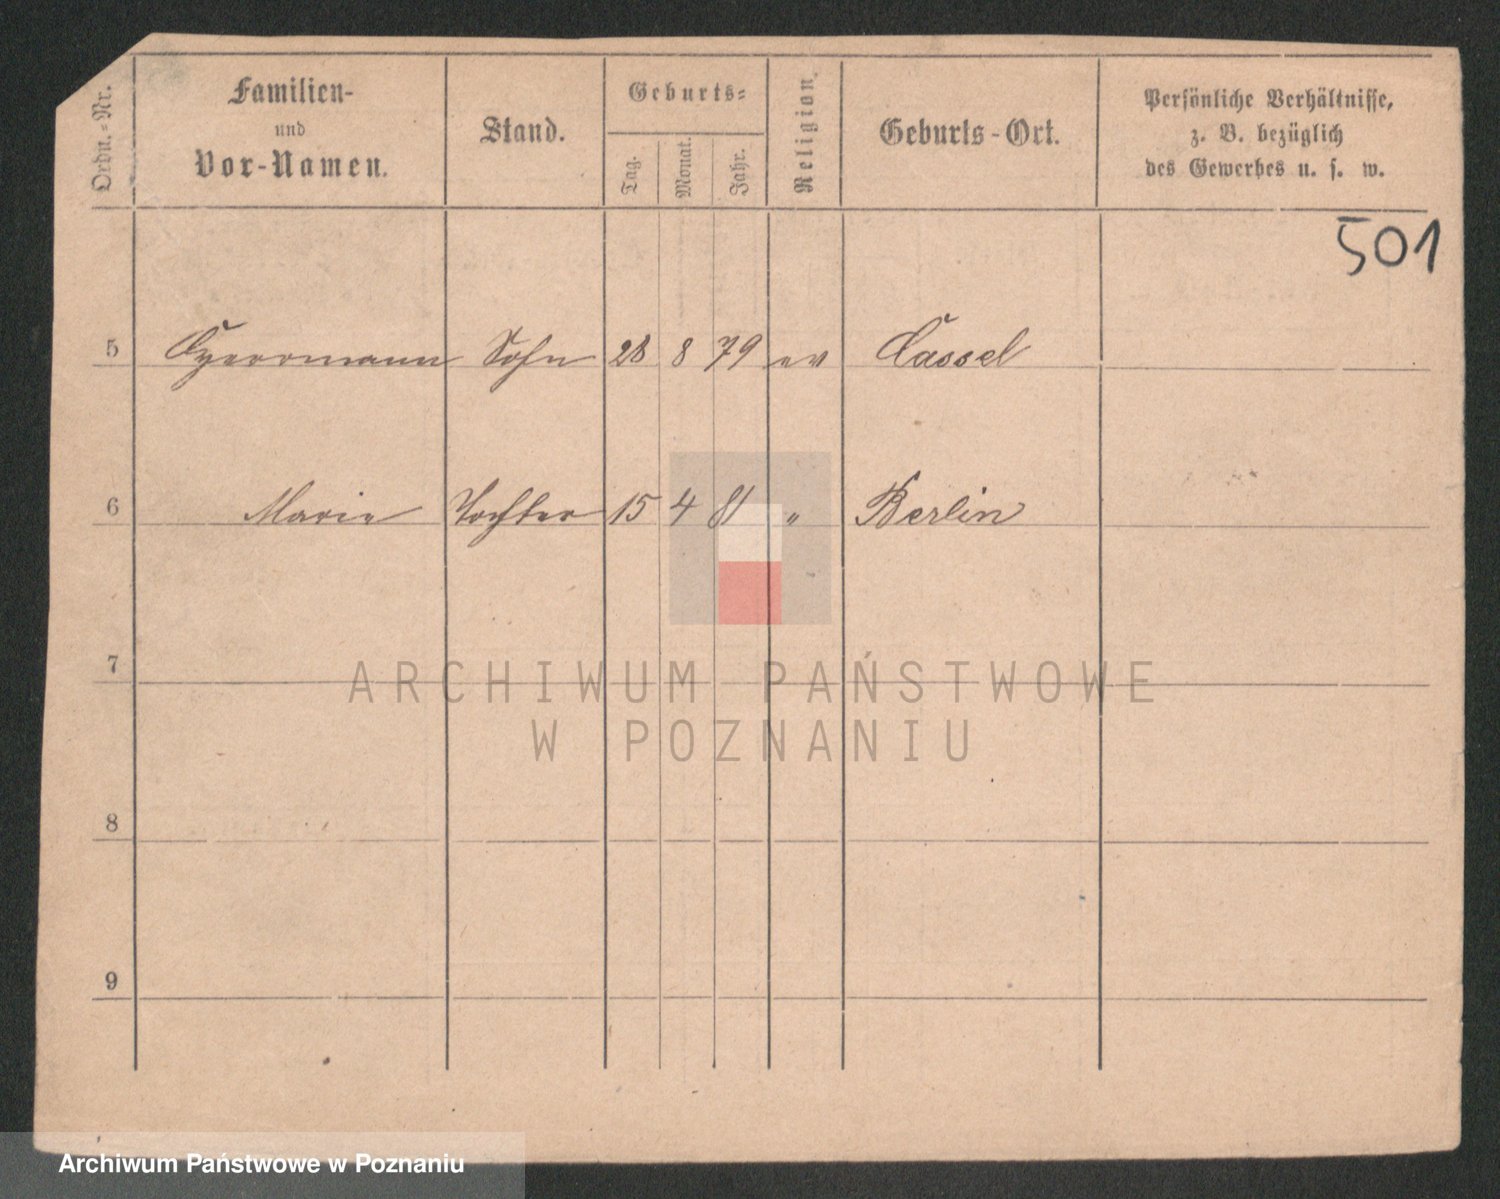 Ordn.-Nr.
Familien-
und
Vor-Namen.
Stand.
Geburts-
Tag.
Monat.
Jahr.
Religion.
Geburts-Ort.
Persönliche Verhältnisse,
z. B. bezüglich
des Gewerbes u. s. w.
501
5 Sohn 28 8 79 ev Cassel
6 Marie Tochter 15 4 81 " Berlin
7
ARCHIWUM PAŃSTWOWE
W POZNANIU
8
9
Archiwum Państwowe w Poznaniu